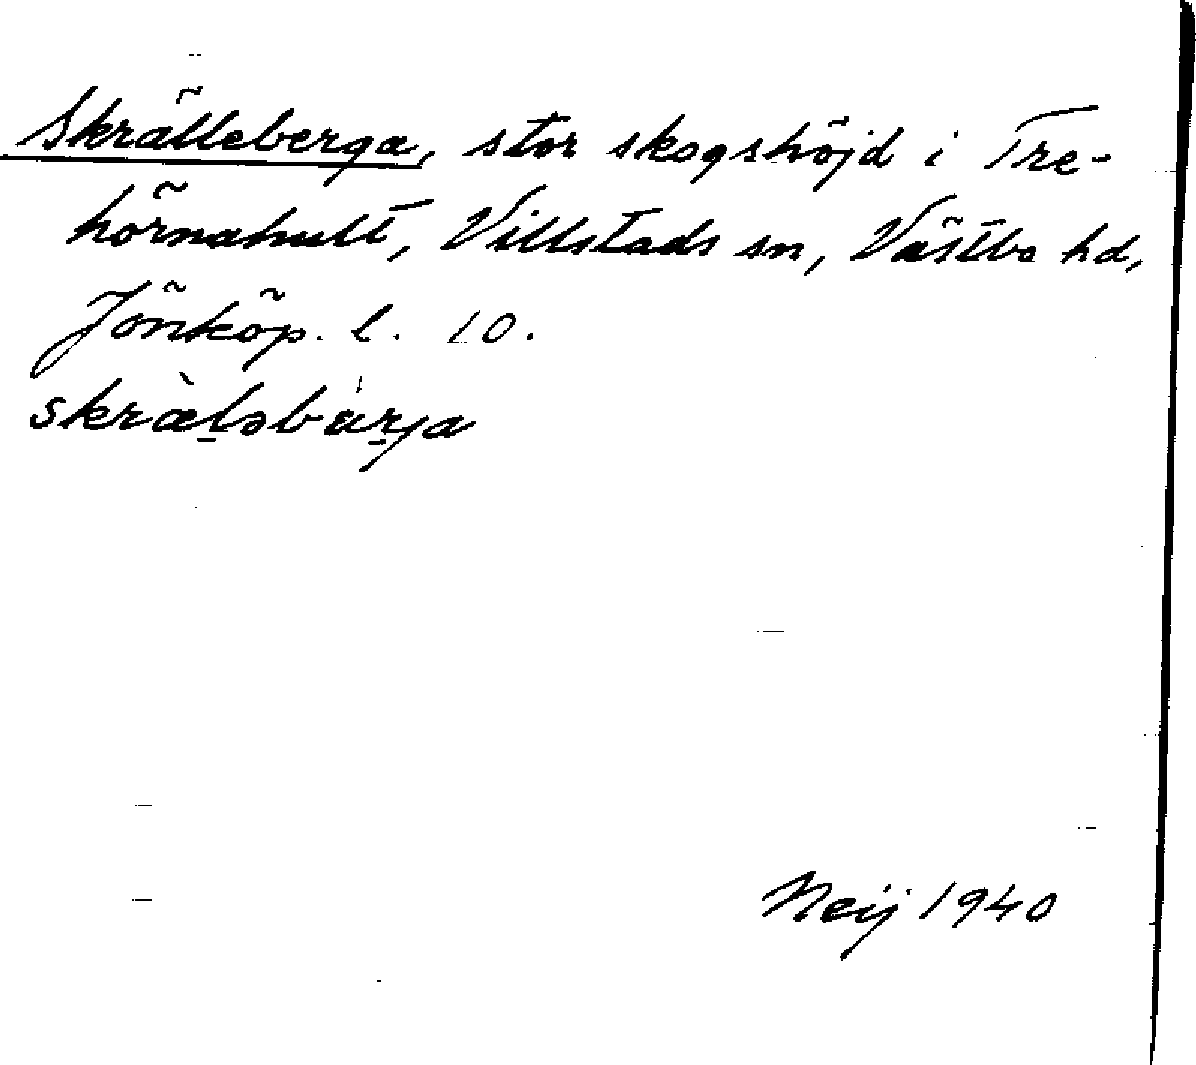 Skrälleberga, stor skogshöjd i Tre-
hörnahult, Villstads sn, Västbo hd,
Jönköp. l. 10.
skræ̀l̠əbær̠ja
Neij 1940